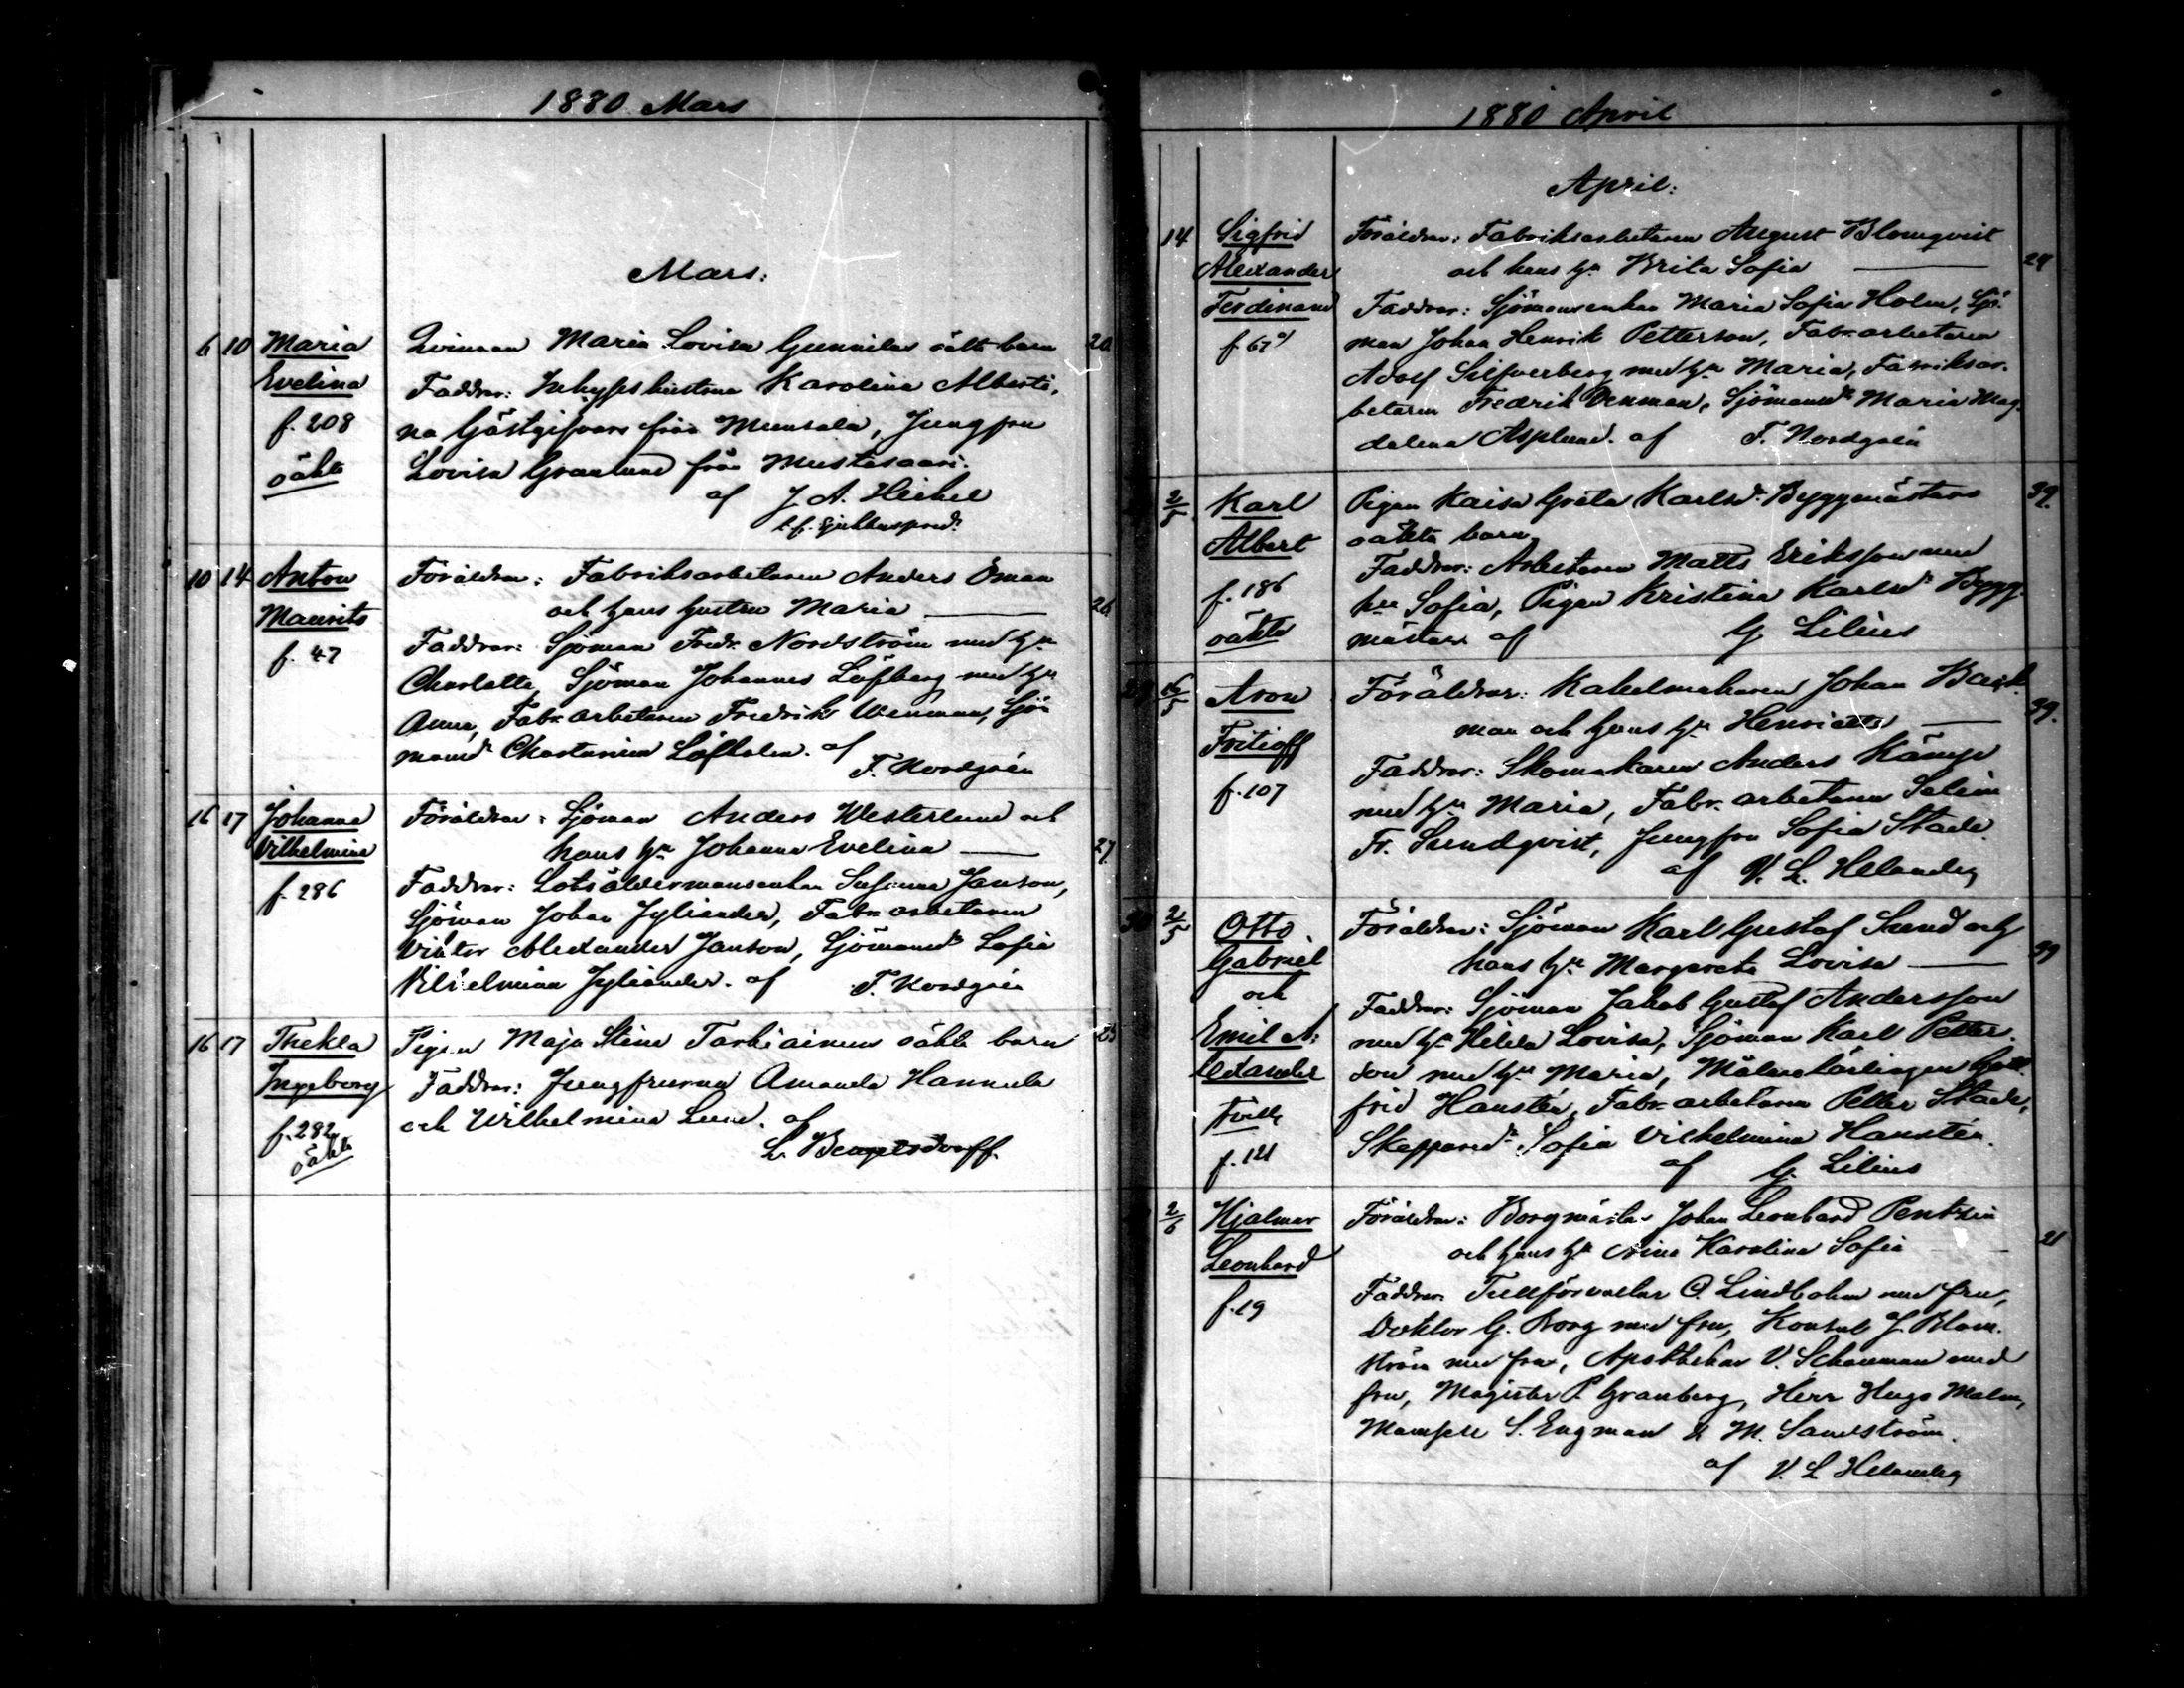 1880 Mars
Mars:
6 10 Maria Qvinnan Maria Lovisa Gunnilas oäkta barn 20
Evelina Faddrar: Inhyseshustrun Karolina Alberti-
f. 208 na Gästgifvars från Munsala, Jungfru
oäkta Lovisa Granlund från Mustasaari.
af J. A. Heikel
t.f. Sjukhuspred.
10 14 Anton Föräldrar: Fabriksarbetaren Anders Öman
Maurits och hans hustru Maria — 26
f. 47 Faddrar: Sjöman Fredr. Nordström med h:u
Charlotta, Sjöman Johannes Löfberg med h:u
Anna, Fabr. arbetaren Fredrik Wenman, Sjö-
mansd:r Löfholm. af
F. Nordgrén
16 17 Johanna Föräldrar: Sjöman Anders Westerlund och
Vilhelmina hans h:u Johanna Evelina — 27
f. 286 Faddrar: Lotsåldermansenkan Susanna Janson,
Sjöman Johan Jyliander, Fabr. arbetaren
Viktor Alexander Janson, Sjömansd:r Sofia
Vilhelmina Jyliander. af F. Nordgrén
16 17 Thekla Pigan Maja Stina Tarkiainens oäkta barn 25
Ingeborg Faddrar: Jungfrurna Amanda Hannula
f. 282 och Wilhelmina Lund. af
oäkta L. Bengelsdorff.
1880 April
April:
14 Sigfrid Föräldrar: Fabriksarbetaren August Blomqvist
Alexander och hans h:u Brita Sofia — 24
Ferdinand Faddrar: Sjömansenkan Maria Sofia Holm, Sjö-
f. 67 man Johan Henrik Petterson, Fabr. arbetaren
Adolf Silfverberg med h:u Maria, Fabriksar-
betaren Fredrik Venman, Sjömansd:r Maria Mag-
dalena Asplund. af F. Nordgrén
2/5 Karl Pigan Kaisa Greta Karlsd:r Byggmästars 39.
Albert oäkta barn
f. 186 Faddrar: Arbetaren Matts Eriksson med
h:u Sofia, Pigan Kristina Karlsd:r Bygg-
oäkta mästar af G. Lilius
Aron Föräldrar: Kakelmakaren Johan Back-
Fritioff man och hans h:u Henrietta — 39.
f. 107 Faddrar: Skomakaren Anders Kämpe
med h:u Maria, Fabr. arbetaren Salim
Fr. Sundqvist, Jungfru Sofia Stade.
af V. L. Helander
30 2/5 Otto Föräldrar: Sjöman Karl Gustaf Sund och
Gabriel hans h:u Margareta Lovisa — 39
och Faddrar: Sjöman Jakob Gustaf Andersson
Emil A- med h:u Hilda Lovisa, Sjöman Karl Petter-
lexander son med h:u Maria, Målarelärlingen Gott-
tvill. frid Hanstén, Fabr. arbetaren Petter Stade,
f. 121 Skeppared:r Sofia Vilhelmina Hanstén.
af G. Lilius
2/6 Hjalmar Föräldrar: Borgmästar Johan Leonhard Pentzin
Leonhard och hans h:u Nina Karolina Sofia — 21
f. 19 Faddrar: Tullförvaltar C. Lindbohm med fru,
Doktor G. Borg med fru, Konsul J. Blom-
ström med fru, Apothekar V. Schauman med
fru, Magister P. Granberg, Herr Hugo Malm,
Mamsell S. Engman & M. Sandström.
af V. L. Helander